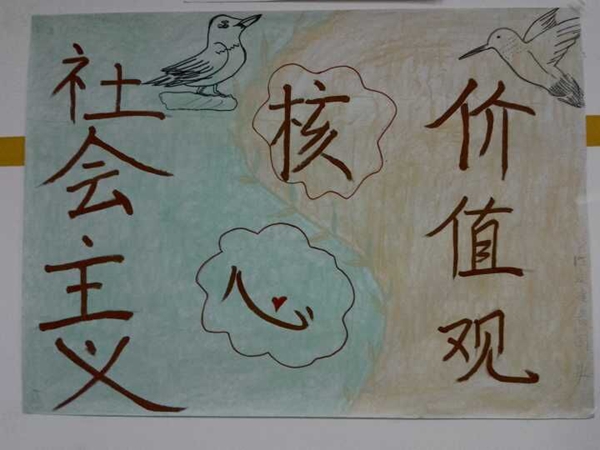 社会主义
核心
价值观